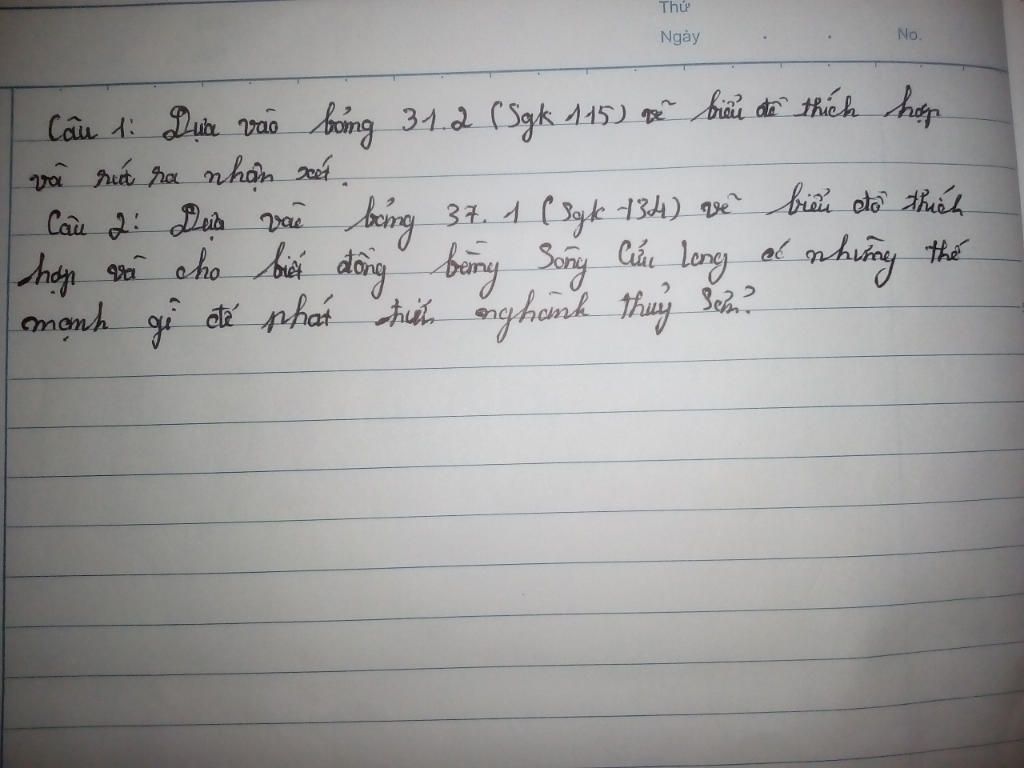 Thứ
Ngày . . No.
Câu 1: Dựa vào bảng 31.2 (Sgk 115) vẽ biểu đồ thích hợp
và rút ra nhận xét.
Câu 2: Dựa vào bảng 37.1 (Sgk -134) vẽ biểu đồ thích
hợp và cho biết đồng bằng Sông Cửu Long có những thế
mạnh gì để phát triển nghành thuỷ sản?